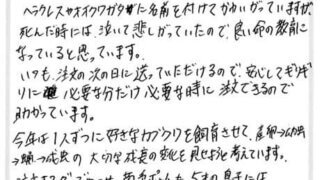 ヘラクレスやオオクワガタに名前を付けてかわいがっていますが、
死んだ時には、泣いて悲しがっていたので、良い命の教育に
なっていると思っています。
いつも、注文の次の日に送っていただけるので、安心してギリギ
リに 必要な分だけ必要な時に注文できるので
助かっています。
今年は1人ずつに好きなカブクワを飼育させて、産卵→幼虫
→蛹→成虫の大切な成長の変化を見せようと考えています。